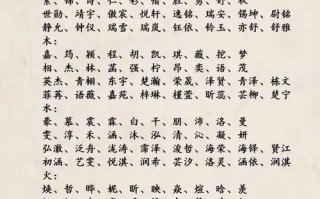 世勋、靖宇、傲宸、悦轩、逸铭、瑞安、锡坤、尉铭
静允、钟仪、瑞雪、瑞岚、钰依、铃玉、亦舒、舒雅
木:
嘉、筠、颖、程、胡、凯、琪、薇、挖、梦
相、杰、林、菡、强、柠、昂、奕、语、茂
英杰、青栩、东宇、楚瀚、荣晟、泽贤、青泽、栋文
菲菁、语薇、嘉苑、梓琳、槿萱、昕蕊、芸柳、楚宁
水:
豪、慕、震、霖、白、干、朋、沛、洛、曼
雯、淳、禾、涵、沐、泓、清、沁、凝、妍
弘澈、泛舟、浅涛、浦泽、浚哲、海荣、海铎、贤江
初涵、艺雯、悦淇、润希、芸汐、洛灵、涵菡、润淇
火:
焕、哲、晔、妮、昕、映、焱、煊、晗、美